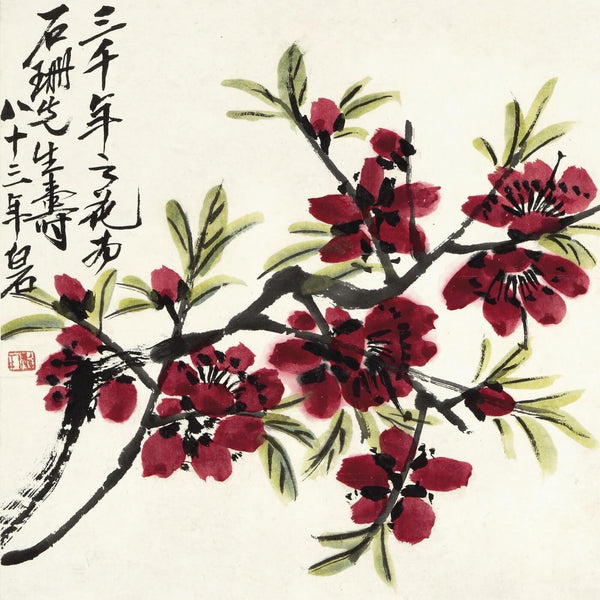 三千年之花为
石珊先生寿
八十三年白石